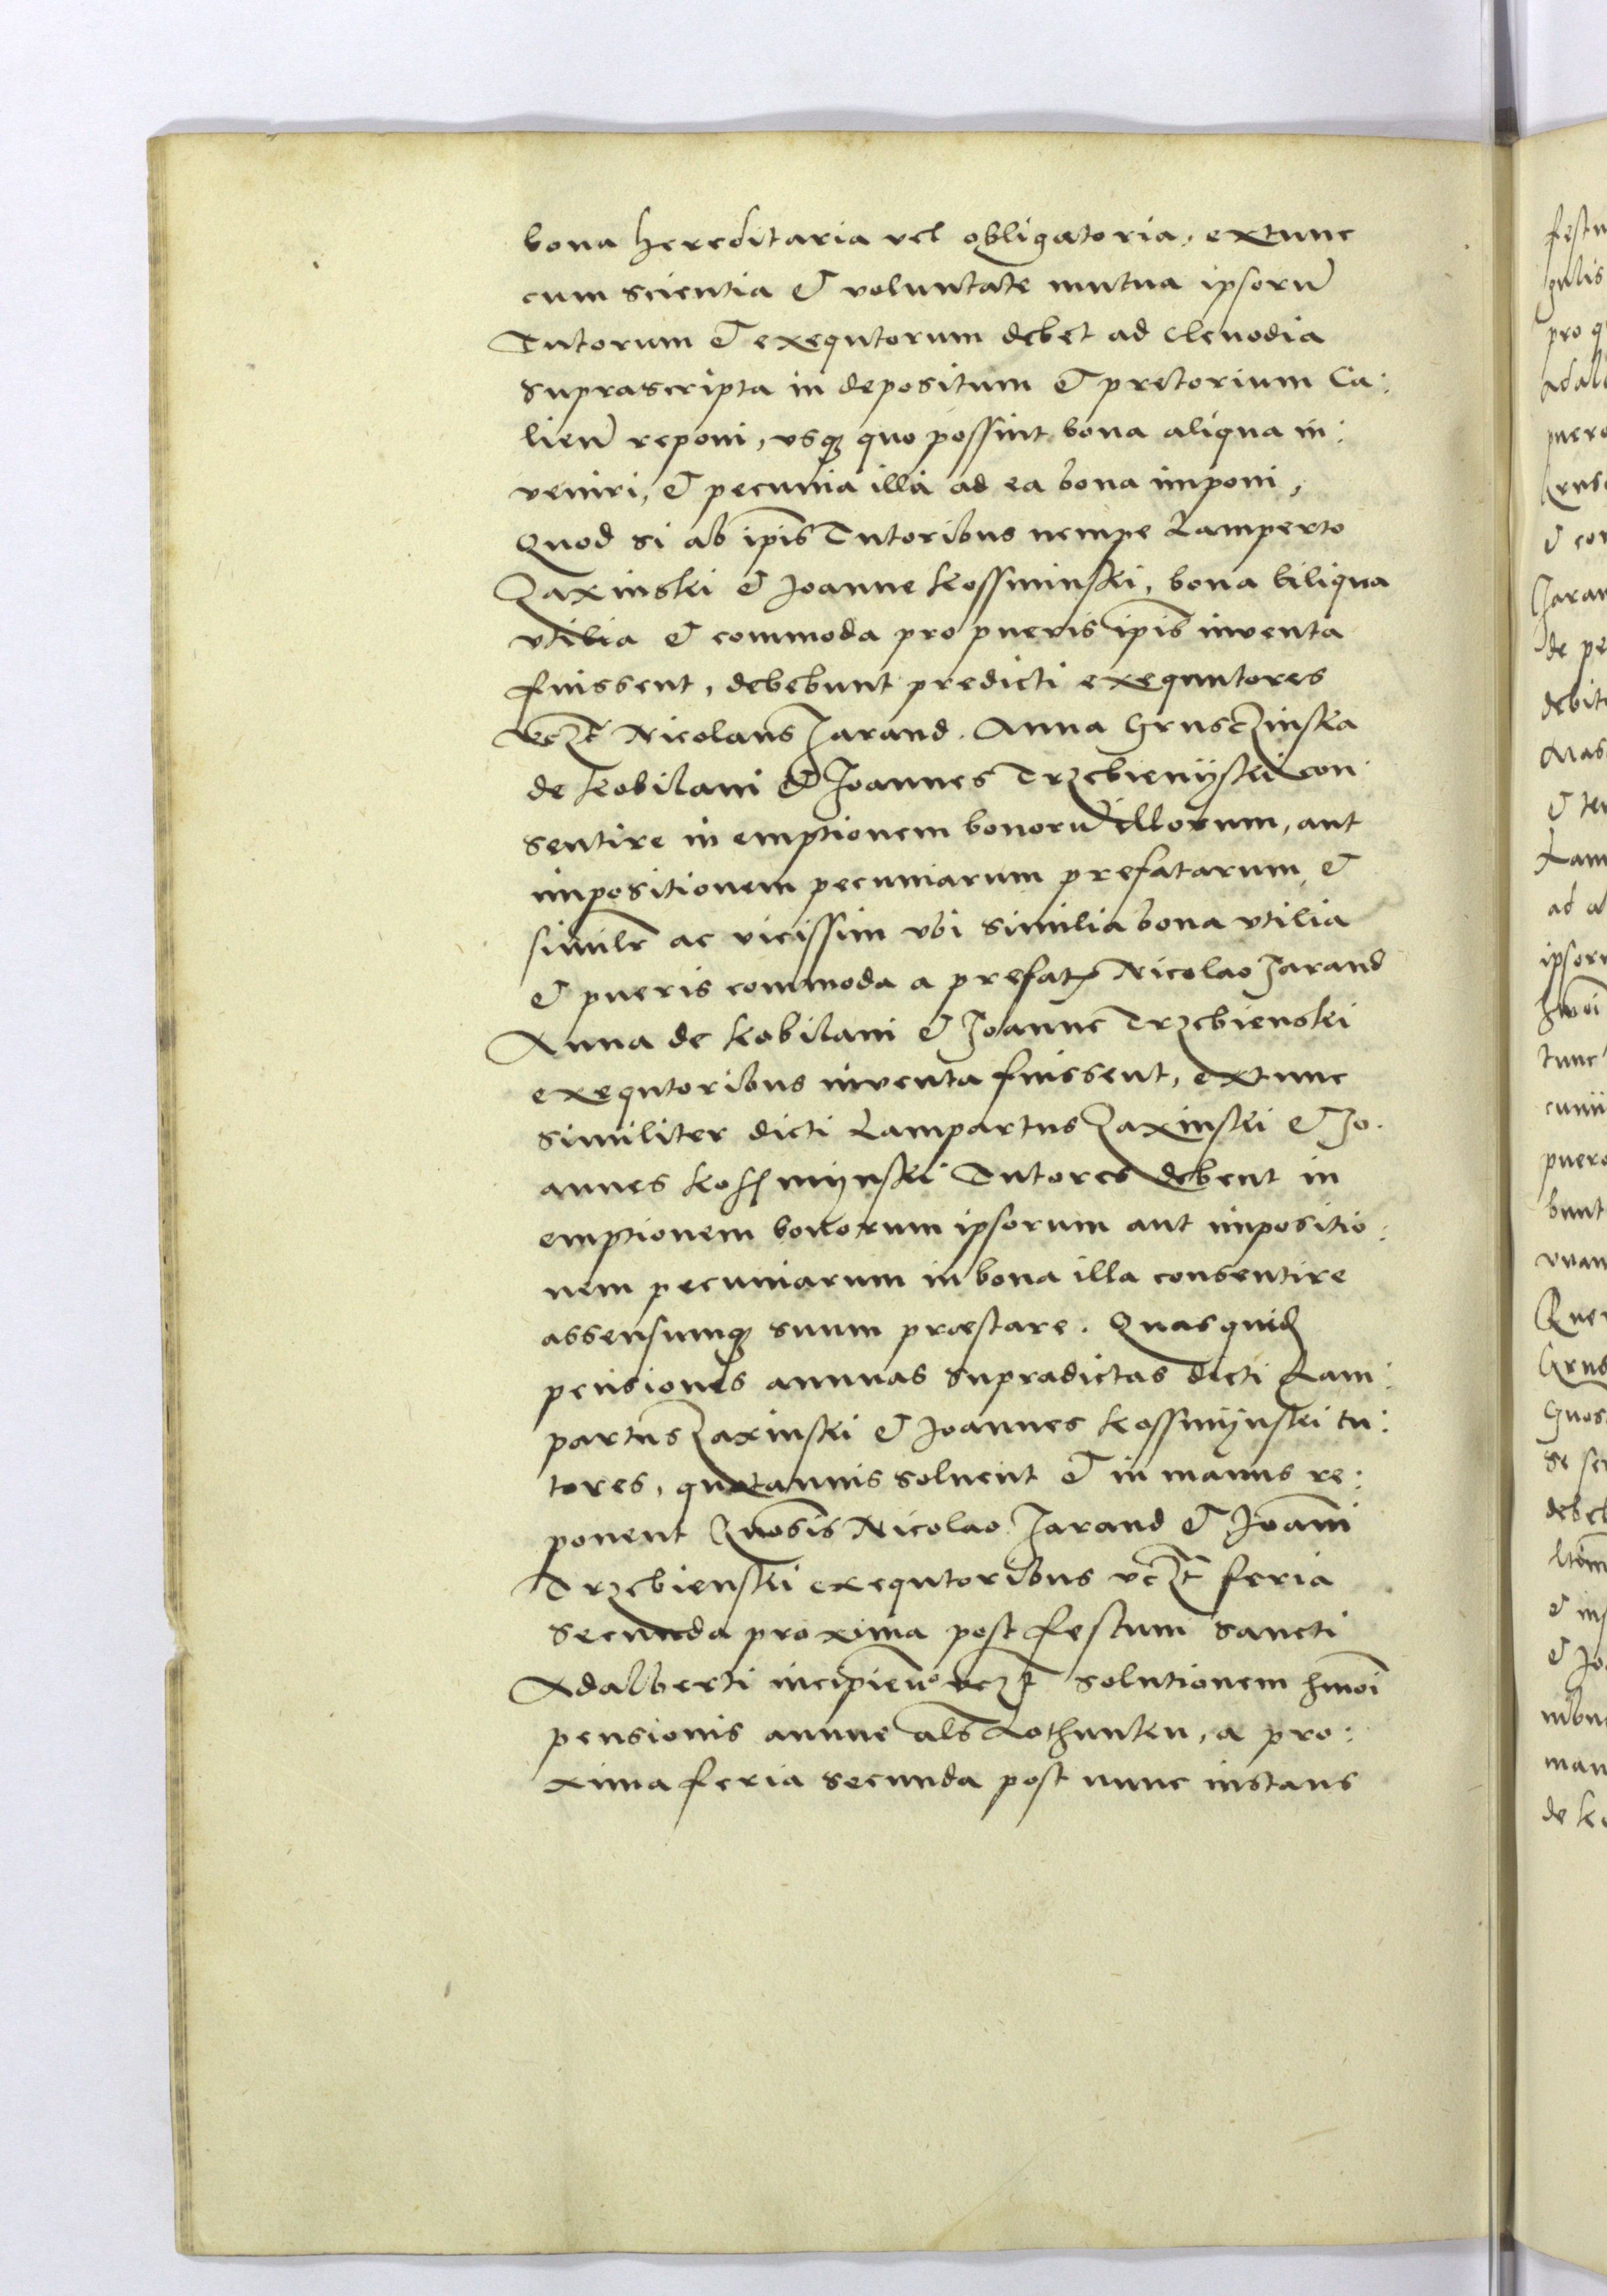 bona hereditaria vel obligatoria, extunc
cum scientia et voluntate mutua ipsorū
Tutorum et exequtorum debet ad clenodia
suprascripta in depositum et pretorium Ca:
lieñ reponi, vsq quo possint bona aliqua in:
veniri, et pecunia illa ad ea bona imponi,
Quod si ab ipīs Tutoribus nempe Lamperto
Zaxinski et Joanne Kossminski, bona aliqua
vtilia et commoda pro pueris ipīs inventa
fuissent, debebunt predicti exequutores
vczt Nicolaus Jarand. Anna Grusczinska
de Kobilani et Joannes Trzebienÿski con
sentire in emptionem bonorū illorum, aut
impositionem pecuniarum prefatarum, et
similr ac vicissim vbi similia bona vtilia
et pueris commoda a prefat Nicolao Jarand
Anna de Kobilani et Joanne Trzebienski
exequtoribus inventa fuissent, extunc
similiter dicti Lampartus Zaxinski et Jo.
annes Kossmÿnski Tutores debent in
emptionem bonorum ipsorum aut impositio:
nem pecuniarum in bona illa consentire
assensumq suum præstare. Quasquid
pensiones annuas supradictas dicti Lam:
partus Zaxinski et Joannes Kossmÿnski tu:
tores, quotannis soluent et in manus re:
ponent Gnosis Nicolao Jarand et Joāni
Trzebienski exequtoribus vczt feria
secunda proxima post festum sancti
Adalberti incipieñ vczt solutionem hmōi
pensionis annue als Lothunku, a pro:
xima feria secunda post nunc instans

festu
pro q
adal
puero
Grus
et con
Jaran
de pe
debit
Mas
et te
Lam
ad a
ipsoru
hmōi
tunc
puero
bunt
vnam
Grus
Gnos
se
debe
et ins
et Jo
man
de K